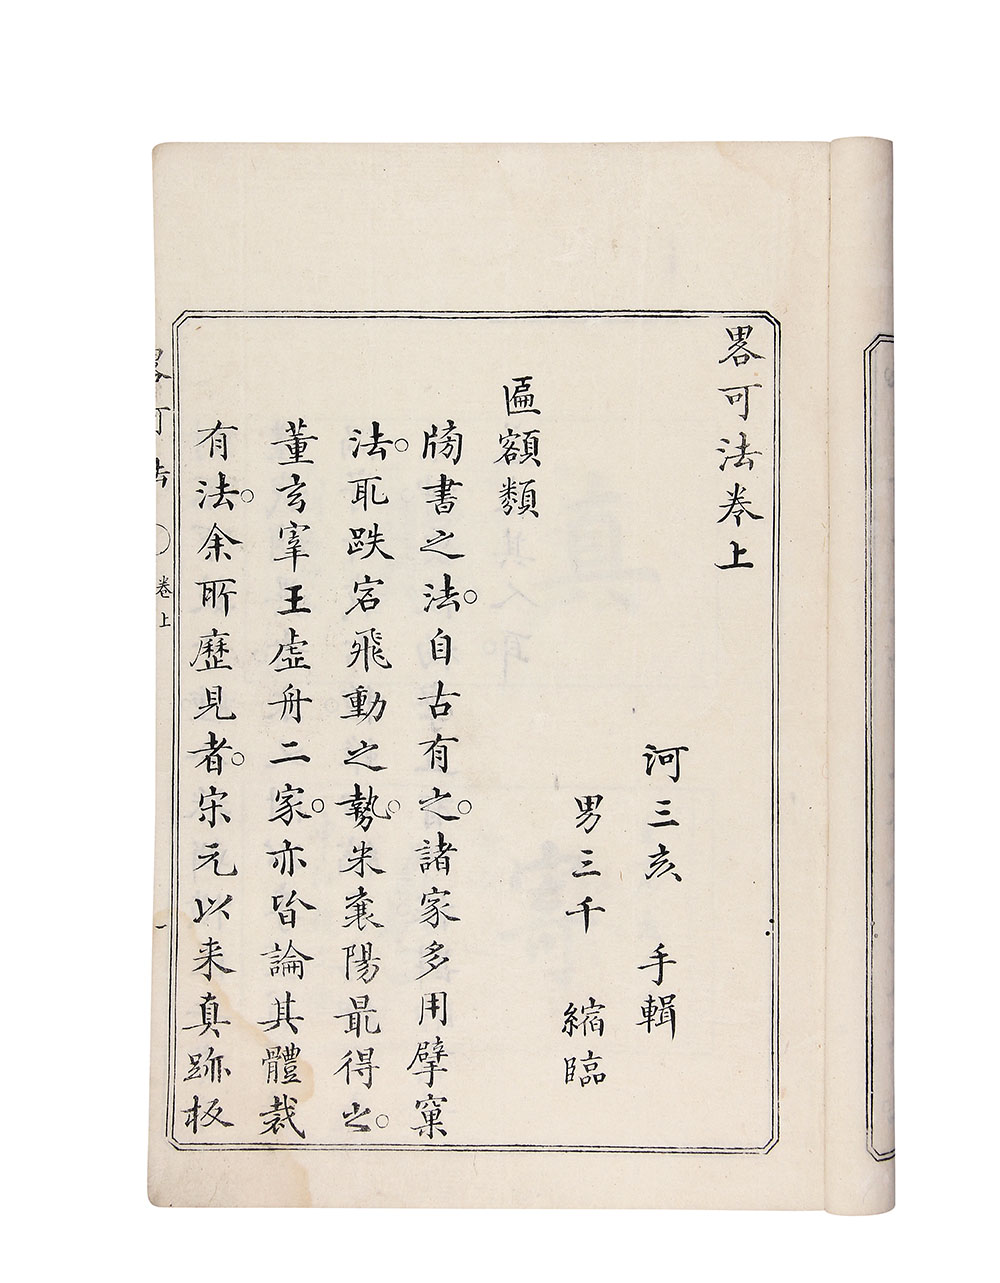 畧可法卷上
河三亥 手輯
男三千 縮臨
匾額類
牓書之法。自古有之。諸家多用擘窠
法。取跌宕飛動之勢。米襄陽最得之。
董玄宰王虛舟二家。亦皆論其體裁
有法。余所歷見者。宋元以来真跡板
畧可法 〇 卷上 一